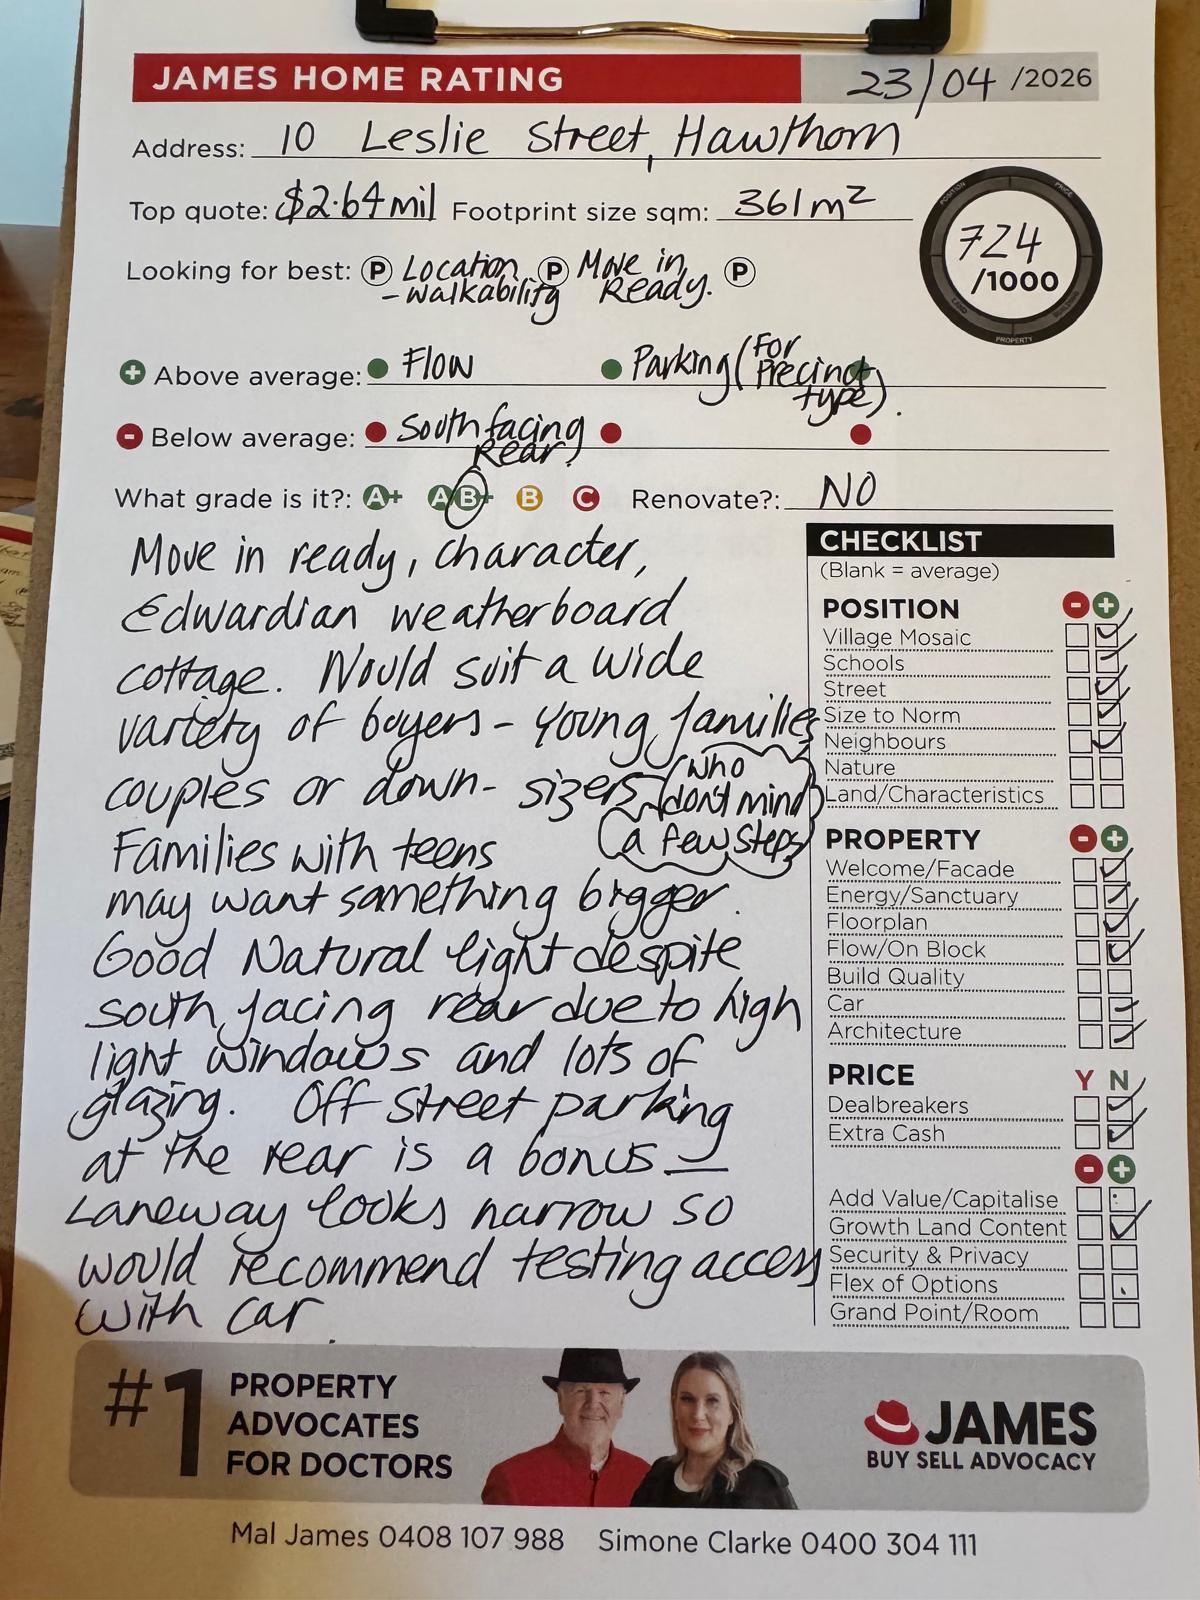 JAMES HOME RATING 23/04 /2026
Address: 10 Leslie Street, Hawthorn
Top quote: $2.64mil Footprint size sqm: 361m²
724
/1000
POSITION PRICE BUILDING PROPERTY LAND
Looking for best: P Location - walkability P Move in Ready. P
+ Above average: Flow Parking (For Precinct type).
- Below average: South facing Rear.
What grade is it?: A+ A B+ B C Renovate?: NO
Move in ready, character,
Edwardian weatherboard
cottage. Would suit a wide
variety of buyers - young families
couples or down-sizers (who
don't mind
a few steps)
Families with teens
may want something bigger.
Good Natural light despite
south facing rear due to high
light windows and lots of
glazing. Off street parking
at the rear is a bonus -
Laneway looks narrow so
would recommend testing access
with car.
CHECKLIST
(Blank = average)
POSITION - +
Village Mosaic
Schools
Street
Size to Norm
Neighbours
Nature
Land/Characteristics
PROPERTY - +
Welcome/Facade
Energy/Sanctuary
Floorplan
Flow/On Block
Build Quality
Car
Architecture
PRICE Y N
Dealbreakers
Extra Cash
- +
Add Value/Capitalise
Growth Land Content
Security & Privacy
Flex of Options
Grand Point/Room
#1 PROPERTY
ADVOCATES
FOR DOCTORS
JAMES
BUY SELL ADVOCACY
Mal James 0408 107 988 Simone Clarke 0400 304 111